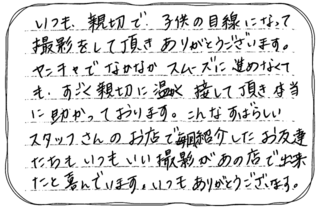 いつも、親切で、子供の目線になって
撮影をして頂きありがとうございます。
ヤンチャでなかなかスムーズに進めなくて
も、すごく親切に温かく接して頂き本当
に助かっております。こんなすばらしい
スタッフさんのお店で毎回紹介したお友達
たちも、いつもいい撮影があの店で出来
たと喜んでいます。いつもありがとうございます。